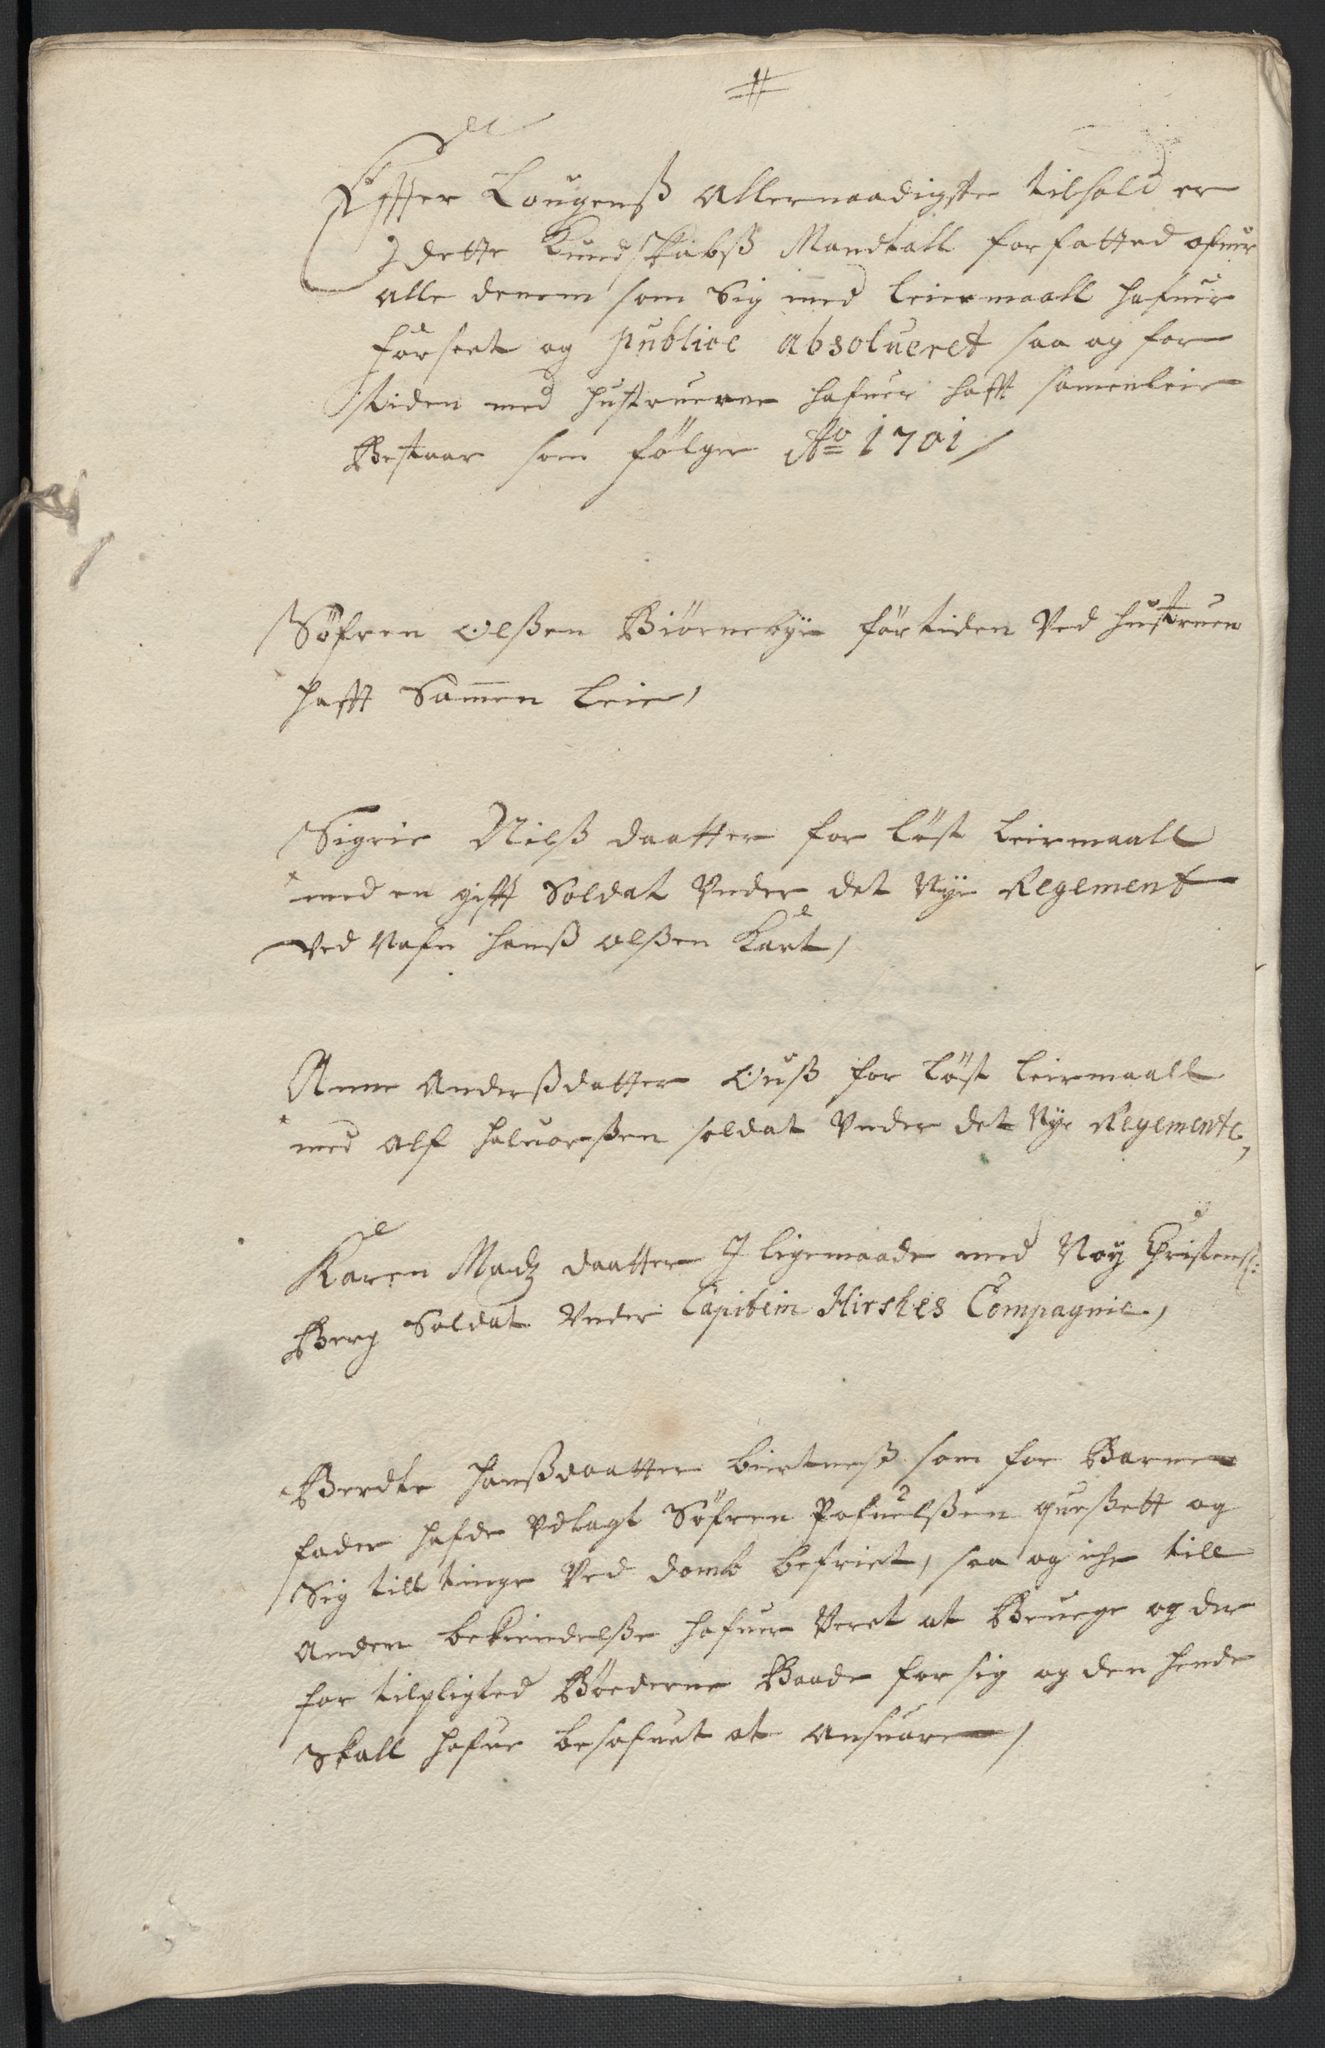 Effter Lougenß Allernaadigste tilhold er
dette Kundskabß Mandtall forfatted ofuer
alle denem som Sig med leiermaall hafuer
forseet og publice absolueret saa og for
tiden med hustruerne hafuer hafft samenleie
Bestaar som følger Ao 1701/
Søfren Olßen Biørnebye førtiden Ved hustruen
hafft Sammen leie,
Sigrie Nilß daatter for løst leiermaall
med en gifft Soldat Vnder det Nye Regement
Ved Nafn Hanß Olßen Kart,
Anne Anderßdatter Ouß for løst leiermaall
med Alf Haluorßen soldat Vnder det Nye Regemente,
Karen Madz daatter J ligemaade med Noy Christenß:
Berg Soldat Vnder Capitein Hirshes Compagnie,
Berdte Hanßdaatter biertneß som for Barne
fader hafde Vdlagt Søfren Pofuelßen queßett og
Sig till tinge Ved domb befriet, saa og iche till
Anden bekiendelße hafuer Veret at Beuege og der
for tilpligted Bøederne Baade for sig og den hende
Skall hafue besofuet at ansuare,